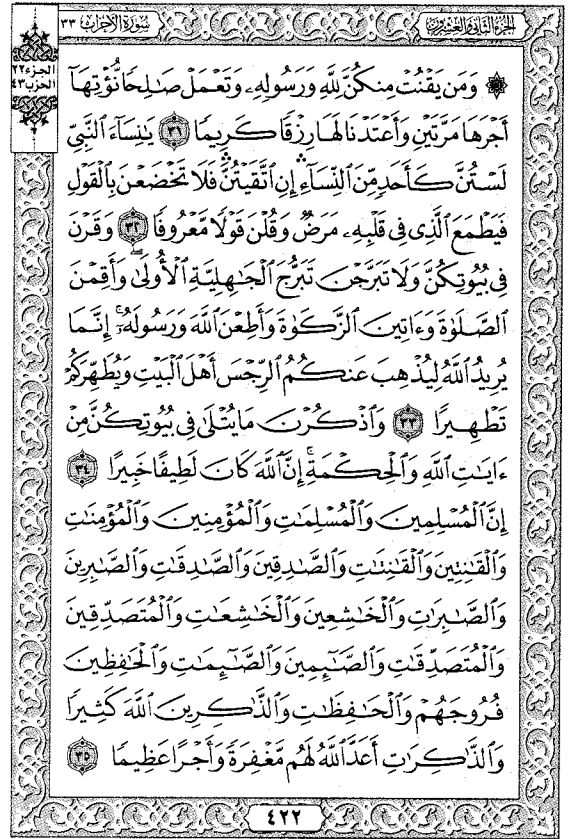 الجزء الثاني والعشرون
سورة الأحزاب ٣٣
الجزء ٢٢
الحزب ٤٣
۞ وَمَن يَقْنُتْ مِنكُنَّ لِلَّهِ وَرَسُولِهِۦ وَتَعْمَلْ صَٰلِحًا نُّؤْتِهَآ
أَجْرَهَا مَرَّتَيْنِ وَأَعْتَدْنَا لَهَا رِزْقًا كَرِيمًا ٣١ يَٰنِسَآءَ ٱلنَّبِىِّ
لَسْتُنَّ كَأَحَدٍ مِّنَ ٱلنِّسَآءِ إِنِ ٱتَّقَيْتُنَّ فَلَا تَخْضَعْنَ بِٱلْقَوْلِ
فَيَطْمَعَ ٱلَّذِى فِى قَلْبِهِۦ مَرَضٌ وَقُلْنَ قَوْلًا مَّعْرُوفًا ٣٢ وَقَرْنَ
فِى بُيُوتِكُنَّ وَلَا تَبَرَّجْنَ تَبَرُّجَ ٱلْجَٰهِلِيَّةِ ٱلْأُولَىٰ وَأَقِمْنَ
ٱلصَّلَوٰةَ وَءَاتِينَ ٱلزَّكَوٰةَ وَأَطِعْنَ ٱللَّهَ وَرَسُولَهُۥٓ ۚ إِنَّمَا
يُرِيدُ ٱللَّهُ لِيُذْهِبَ عَنكُمُ ٱلرِّجْسَ أَهْلَ ٱلْبَيْتِ وَيُطَهِّرَكُمْ
تَطْهِيرًا ٣٣ وَٱذْكُرْنَ مَا يُتْلَىٰ فِى بُيُوتِكُنَّ مِنْ
ءَايَٰتِ ٱللَّهِ وَٱلْحِكْمَةِ ۚ إِنَّ ٱللَّهَ كَانَ لَطِيفًا خَبِيرًا ٣٤
إِنَّ ٱلْمُسْلِمِينَ وَٱلْمُسْلِمَٰتِ وَٱلْمُؤْمِنِينَ وَٱلْمُؤْمِنَٰتِ
وَٱلْقَٰنِتِينَ وَٱلْقَٰنِتَٰتِ وَٱلصَّٰدِقِينَ وَٱلصَّٰدِقَٰتِ وَٱلصَّٰبِرِينَ
وَٱلصَّٰبِرَٰتِ وَٱلْخَٰشِعِينَ وَٱلْخَٰشِعَٰتِ وَٱلْمُتَصَدِّقِينَ
وَٱلْمُتَصَدِّقَٰتِ وَٱلصَّٰٓئِمِينَ وَٱلصَّٰٓئِمَٰتِ وَٱلْحَٰفِظِينَ
فُرُوجَهُمْ وَٱلْحَٰفِظَٰتِ وَٱلذَّٰكِرِينَ ٱللَّهَ كَثِيرًا
وَٱلذَّٰكِرَٰتِ أَعَدَّ ٱللَّهُ لَهُم مَّغْفِرَةً وَأَجْرًا عَظِيمًا ٣٥
٤٢٢